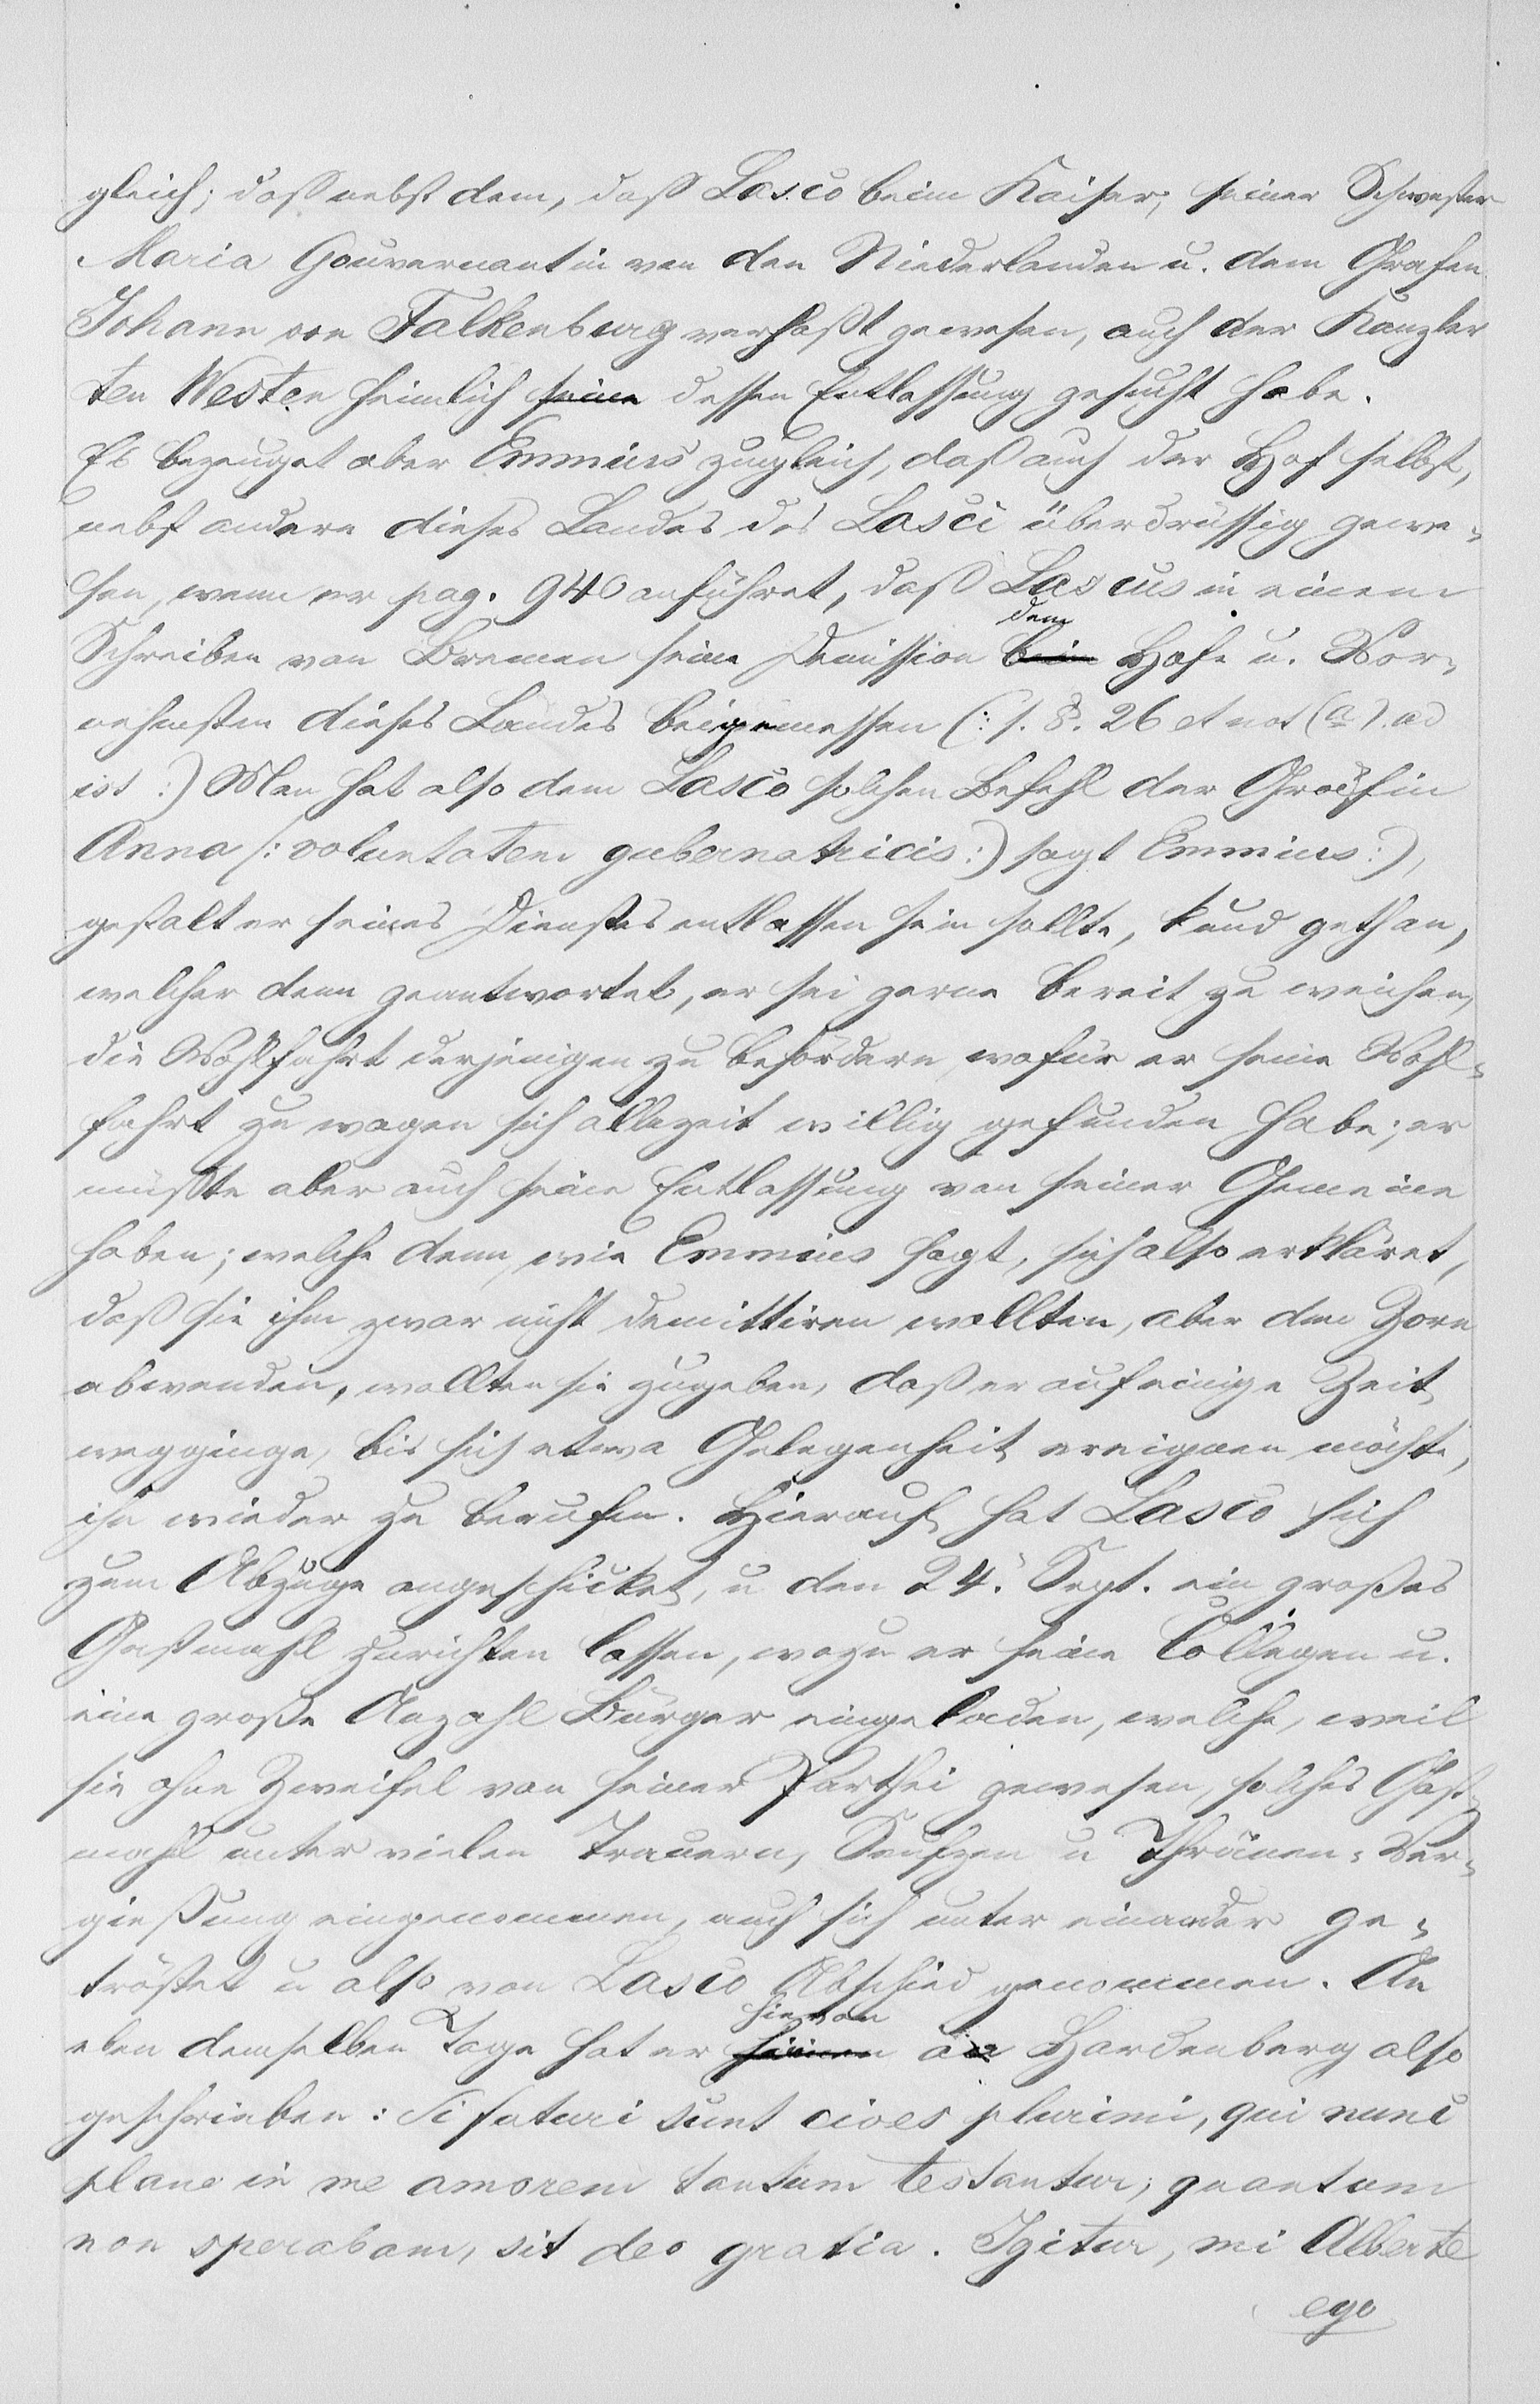 gleich; daß nebst dem, daß Lasco beim Kaiser, seiner Schwester
Maria Gouvernantin von den Niederlanden u. dem Grafen
Johann von Falkenburg verhaßt gewesen, auch der Kanzler
ten Westen heimlich seine dessen Entlassung gesucht habe.
Es bezeuget aber Emmius zugleich, daß auch der Hof selbst,
nebst andern dieses Landes des Lasci überdrüssig gewe-
sen, wenn er pag. 940 anführet, daß Lascus in einem
Schreiben von Bremen seine Demission beim dem Hofe u. Vor-
nehmsten dieses Landes beigemessen (: s. §. 26 et not (a). ad
ist :) Man hat also dem Lasco solchen Befehl der Gräfin
Anna (: voluntatem gubernatricis :) sagt Emmius :),
gestalt er seines Dienstes entlassen sein sollte, kund gethan,
welcher denn geantwortet, er sei gerne bereit zu weichen,
die Wohlfahrt derjenigen zu befördern, wofür er seine Wohl-
fahrt zu wagen sich allezeit willig gefunden habe; er
müßte aber auch seine Entlassung von seiner Gemeine
haben; welche denn, wie Emmius sagt, sich also erkläret,
daß sie ihn zwar nicht demittiren wollten, aber den Zorn
abwenden, wollten sie zugeben, daß er auf einige Zeit
wegginge, bis sich etwa Gelegenheit ereignen möchte,
ihn wieder zu berufen. Hierauf hat Lasco sich
zum Abzuge angeschicket, u den 24. Sept. ein großes
Gastmahl zurichten lassen, wozu er seine Collegen u.
eine große Anzahl Bürger eingeladen, welche, weil
sie ohne Zweifel von seiner Parthei gewesen, solches Gast-
mahl unter vielen Trauern, Seufzen u Thränen-Ver-
gießung eingenommen, auch sich unter einander ge-
tröstet u also von Lasco Abschied genommen. An
eben demselben Tage hat er hievon an Hardenberg also
geschrieben: Si futuri sunt cives plurimi, qui nunc
plane in me amorem tantum testantur, quantum
non sperabam, sit deo gratia. Igitur, mi Alberte
ego